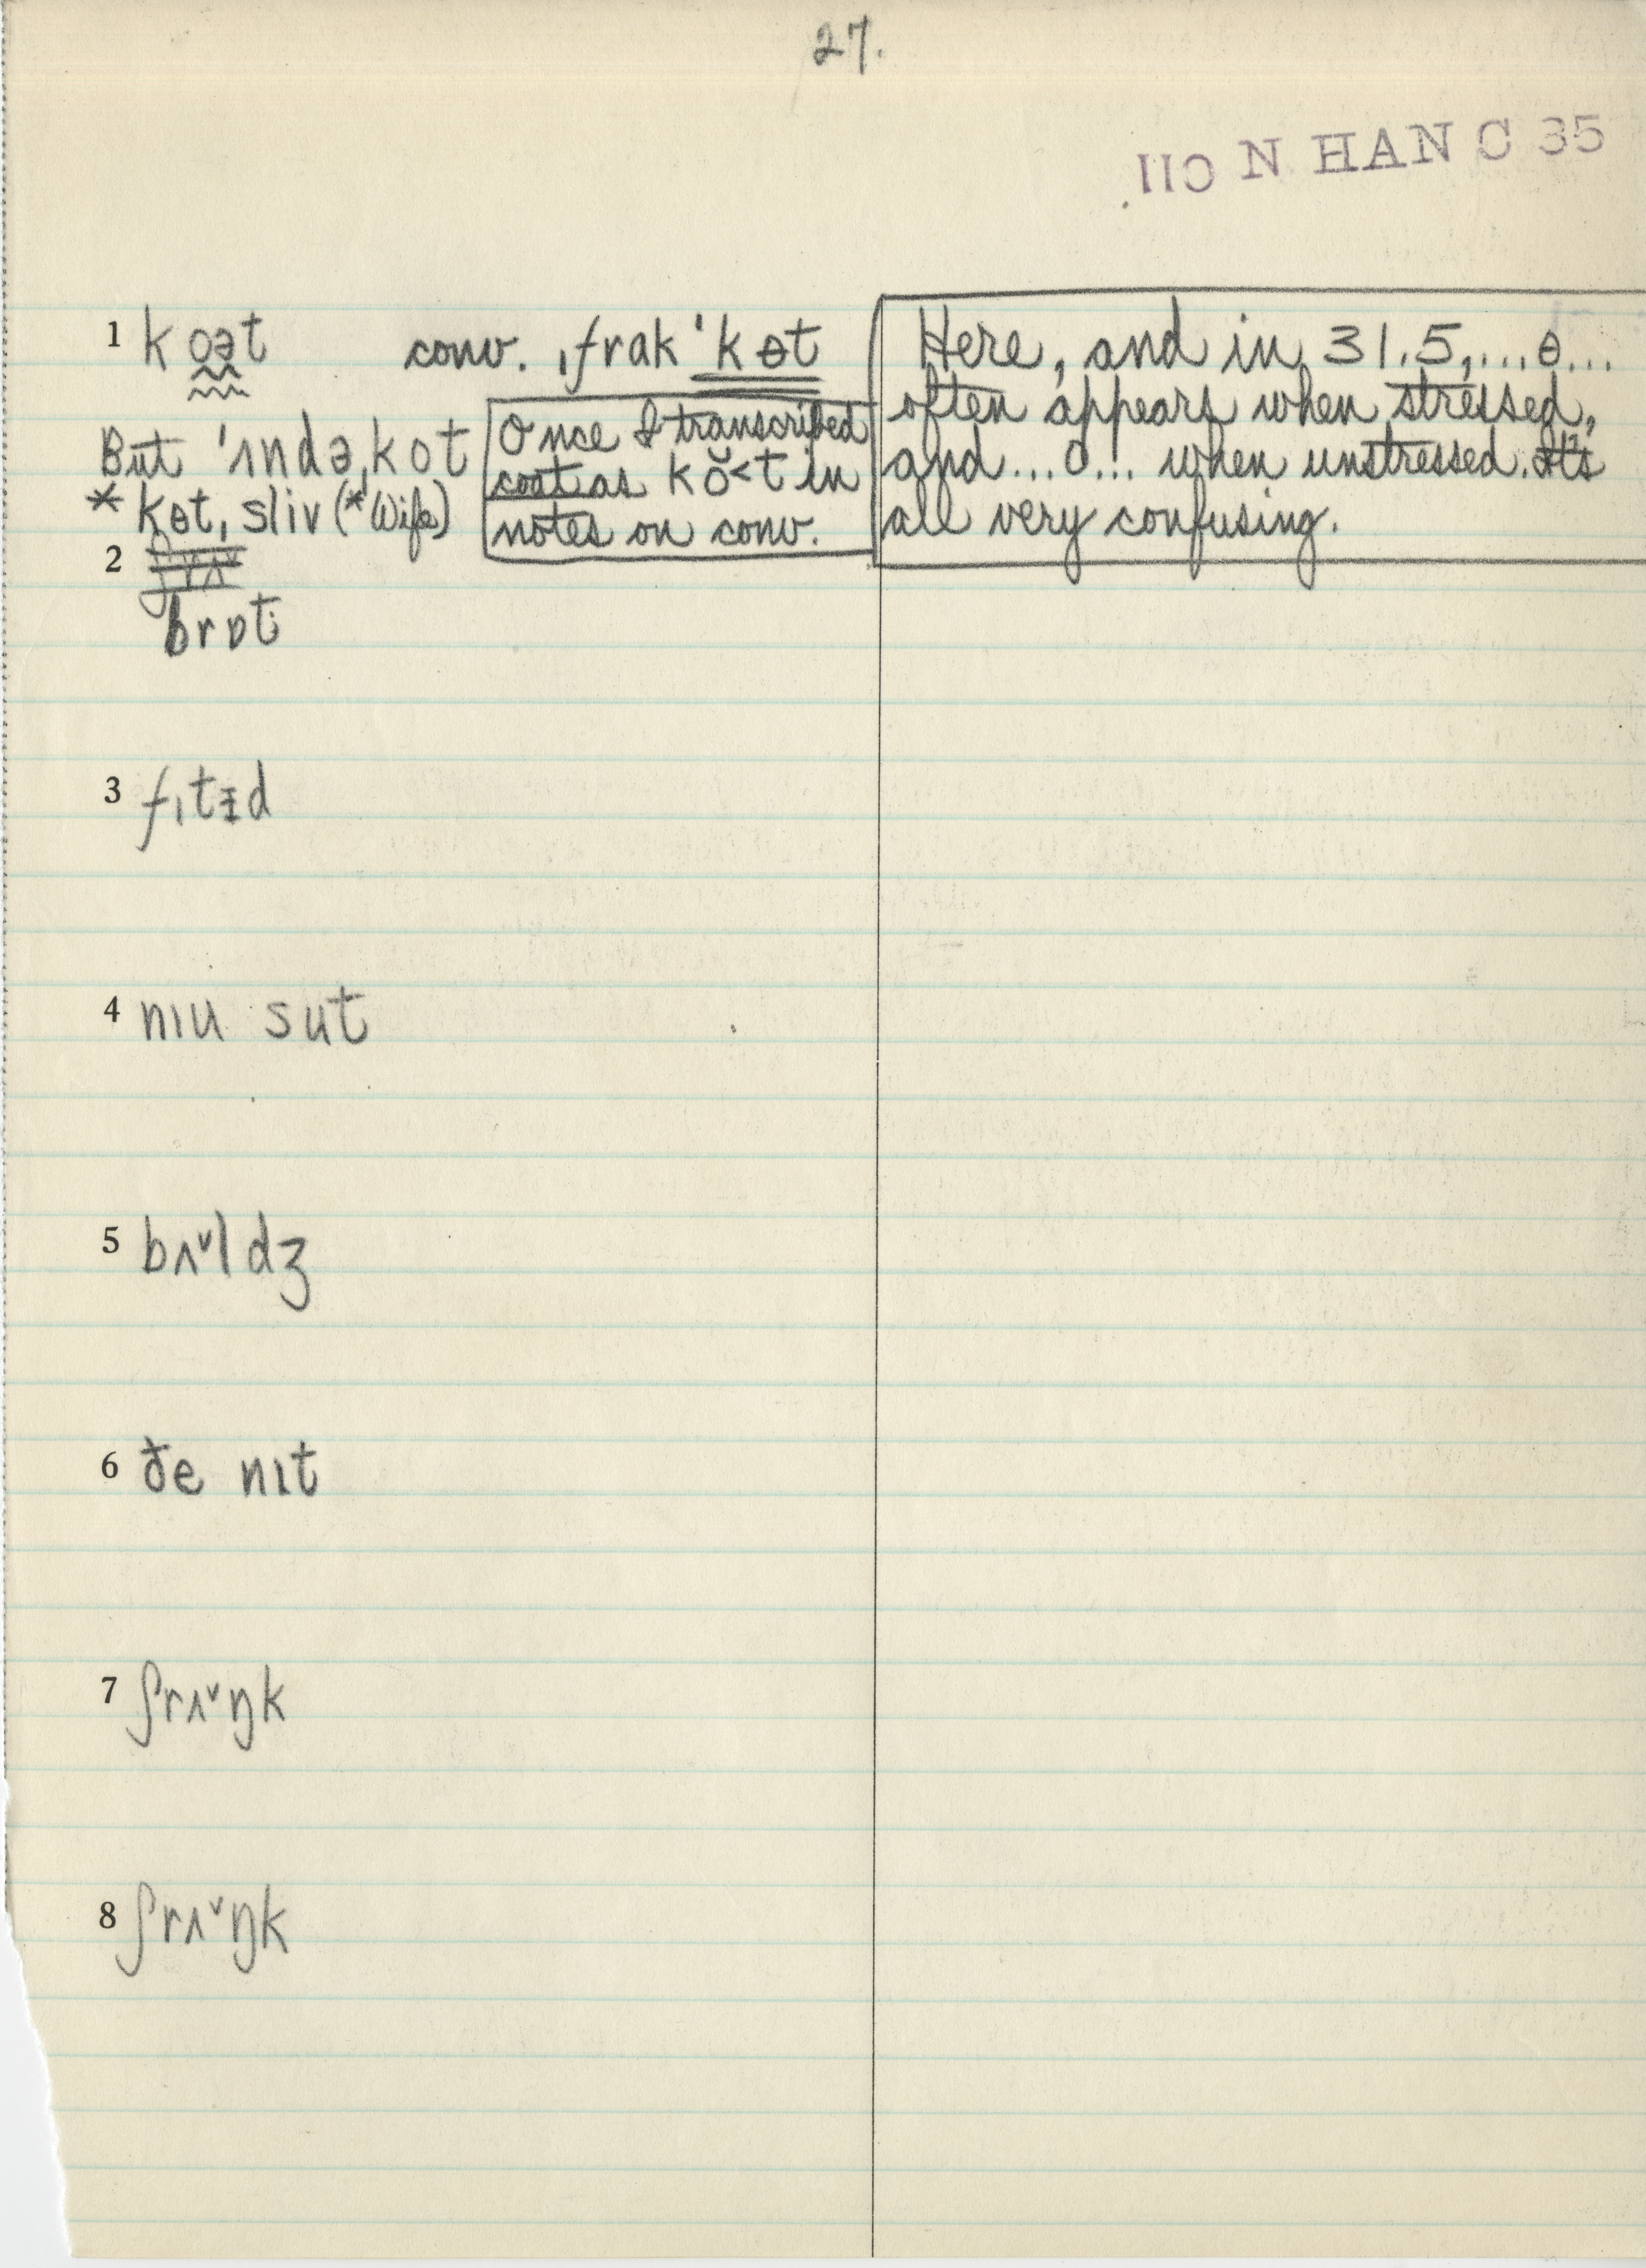 27.
110 N HAN C 35
1 koət conv. ˌfrak ˈkɵt
But ˈɪndəˌkot
* kɵt, sliv (*Wife)
Once I transcribed
coat as kŏ<t in
notes on conv.
Here, and in 31.5,...ɵ...
often appears when stressed,
and...o... when unstressed. It's
all very confusing.
2
brɒt
3 fɪtɪd
4 nɪu sut
5 bʌˇldʒ
6 ðe nɪt
7 ʃrʌˇŋk
8 ʃrʌˇŋk